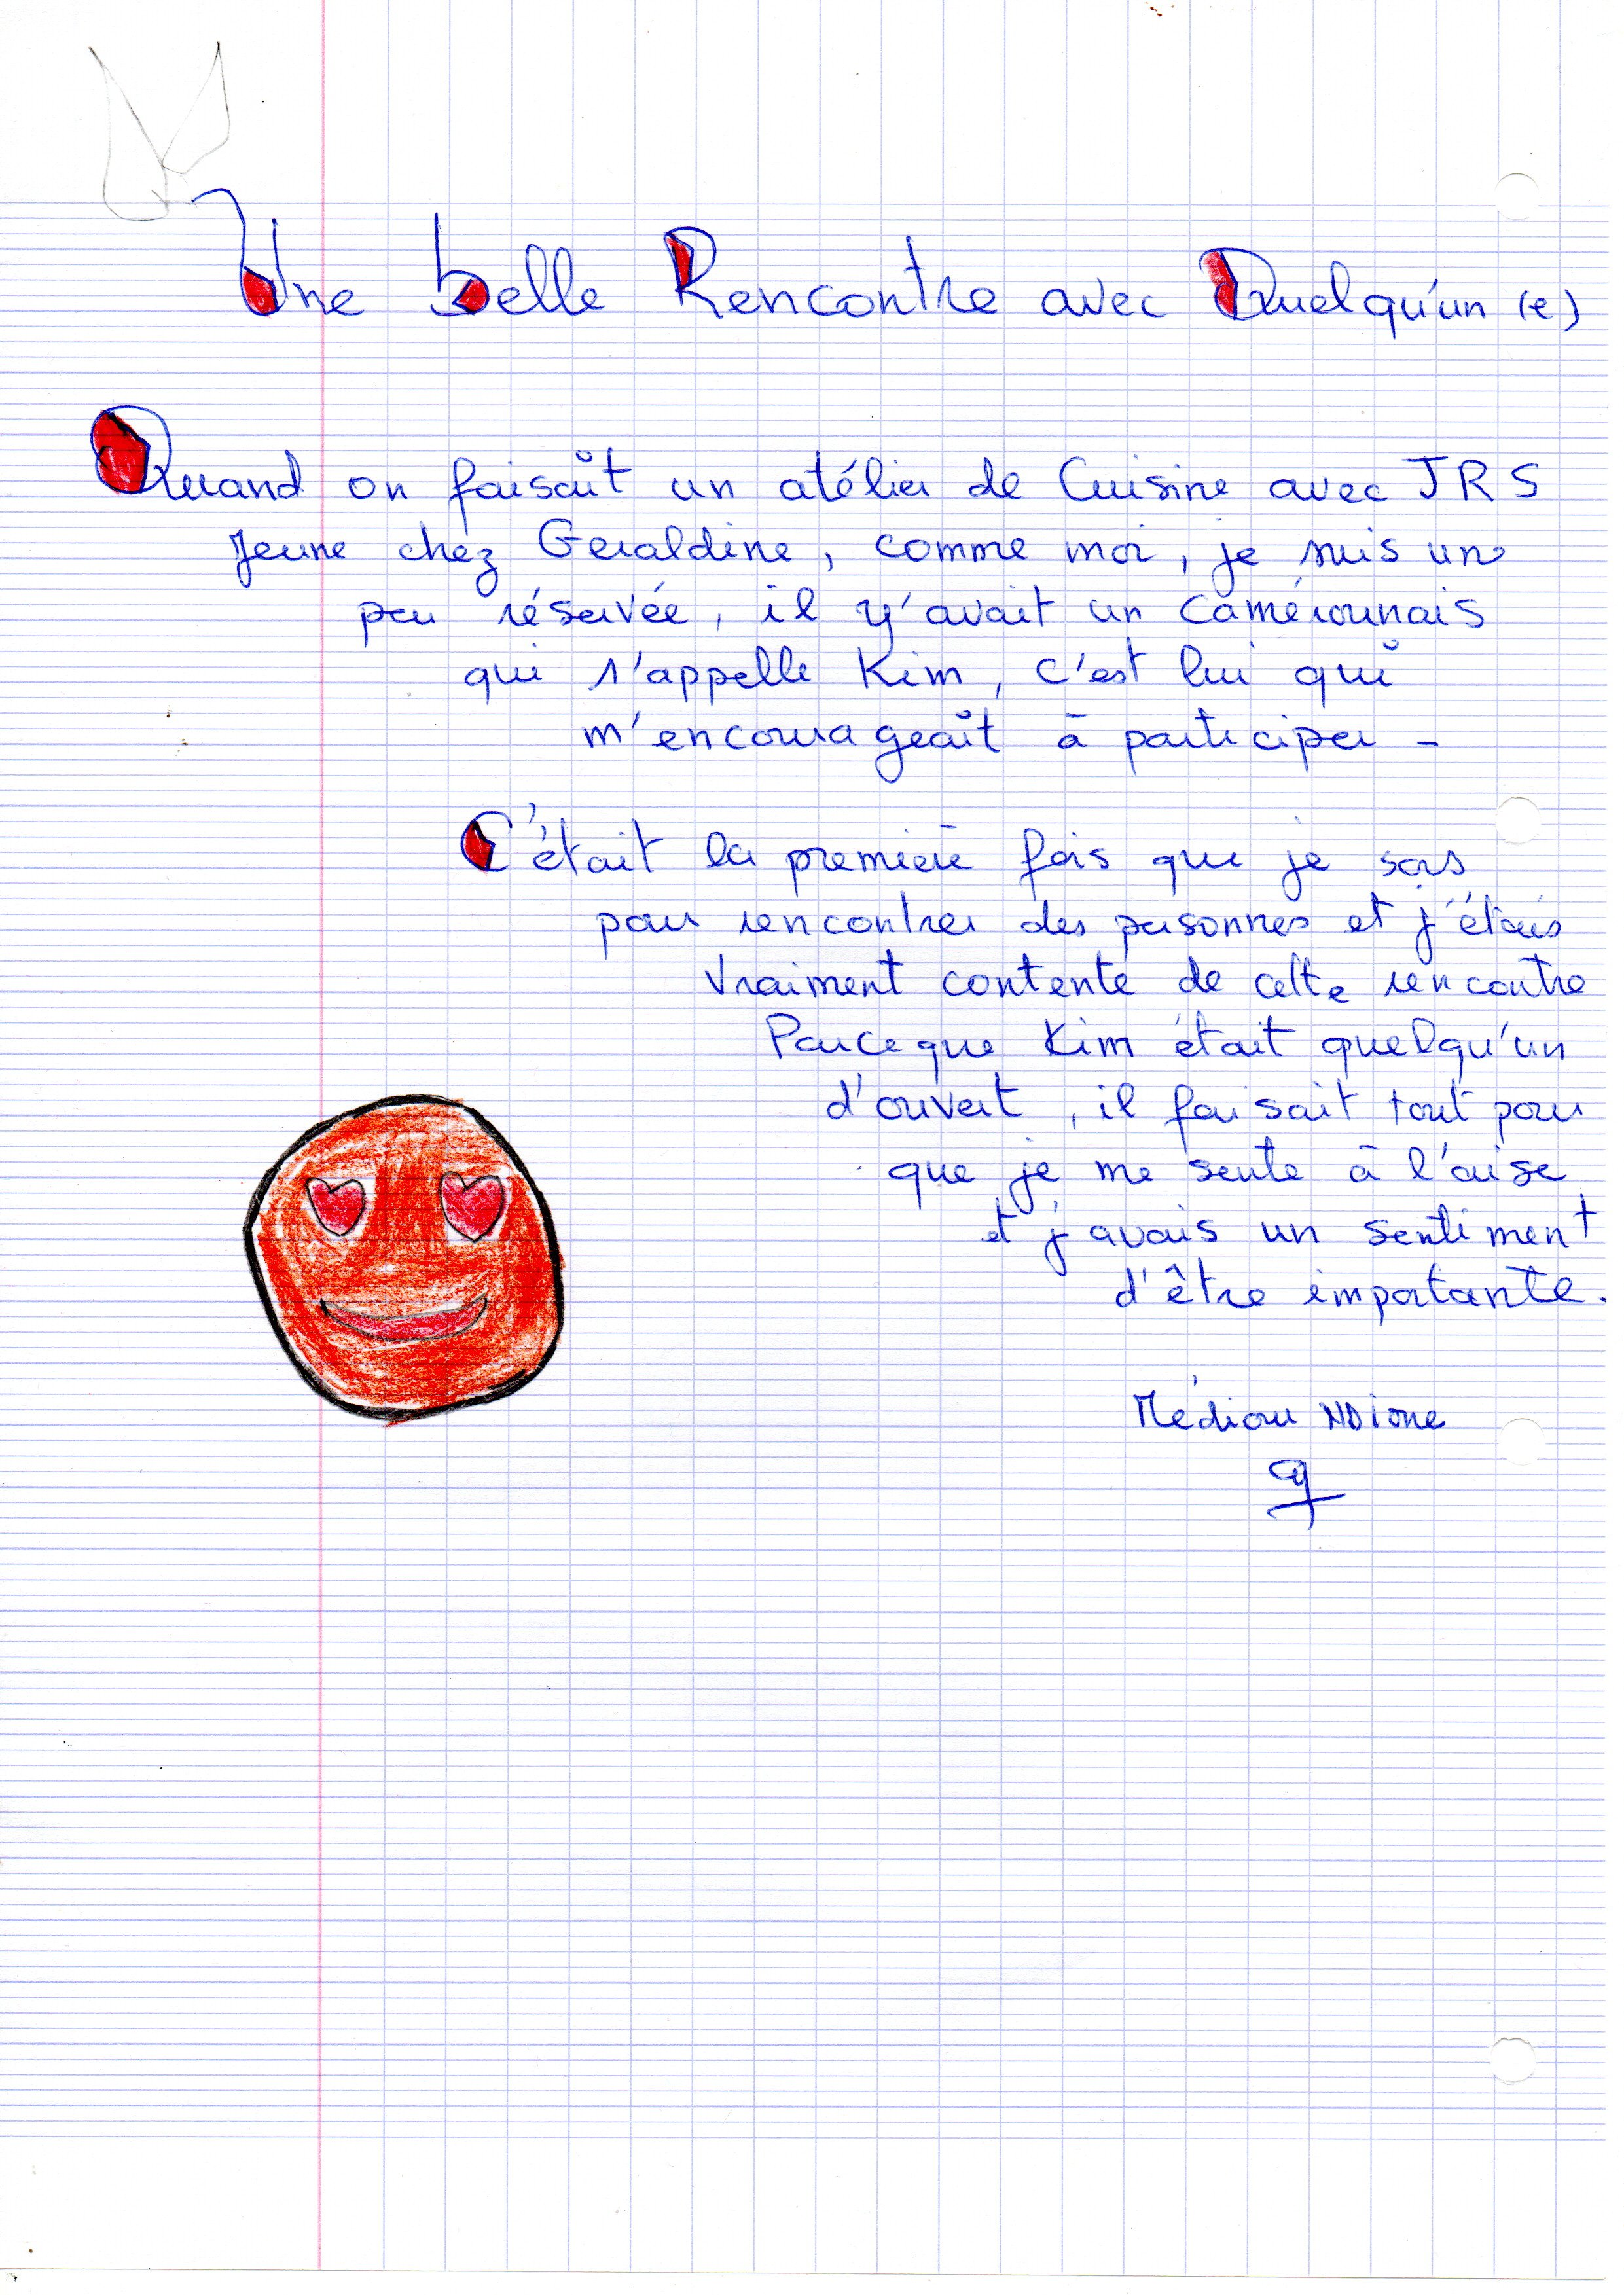 Une belle Rencontre avec Quelqu'un (e)
Quand on faisait un atélier de Cuisine avec JRS
Jeune chez Geraldine, comme moi, je suis un
peu réservée, il y'avait un Camérounais
qui s'appelle Kim, c'est lui qui
m'encourageait à participer -
C'était la première fois que je sors
pour rencontrer des personnes et j'étais
vraiment contente de cette rencontre
Parce que Kim était quelqu'un
d'ouvert, il faisait tout pour
que je me sente à l'aise
et j'avais un sentiment
d'être importante.
Médiou NDione